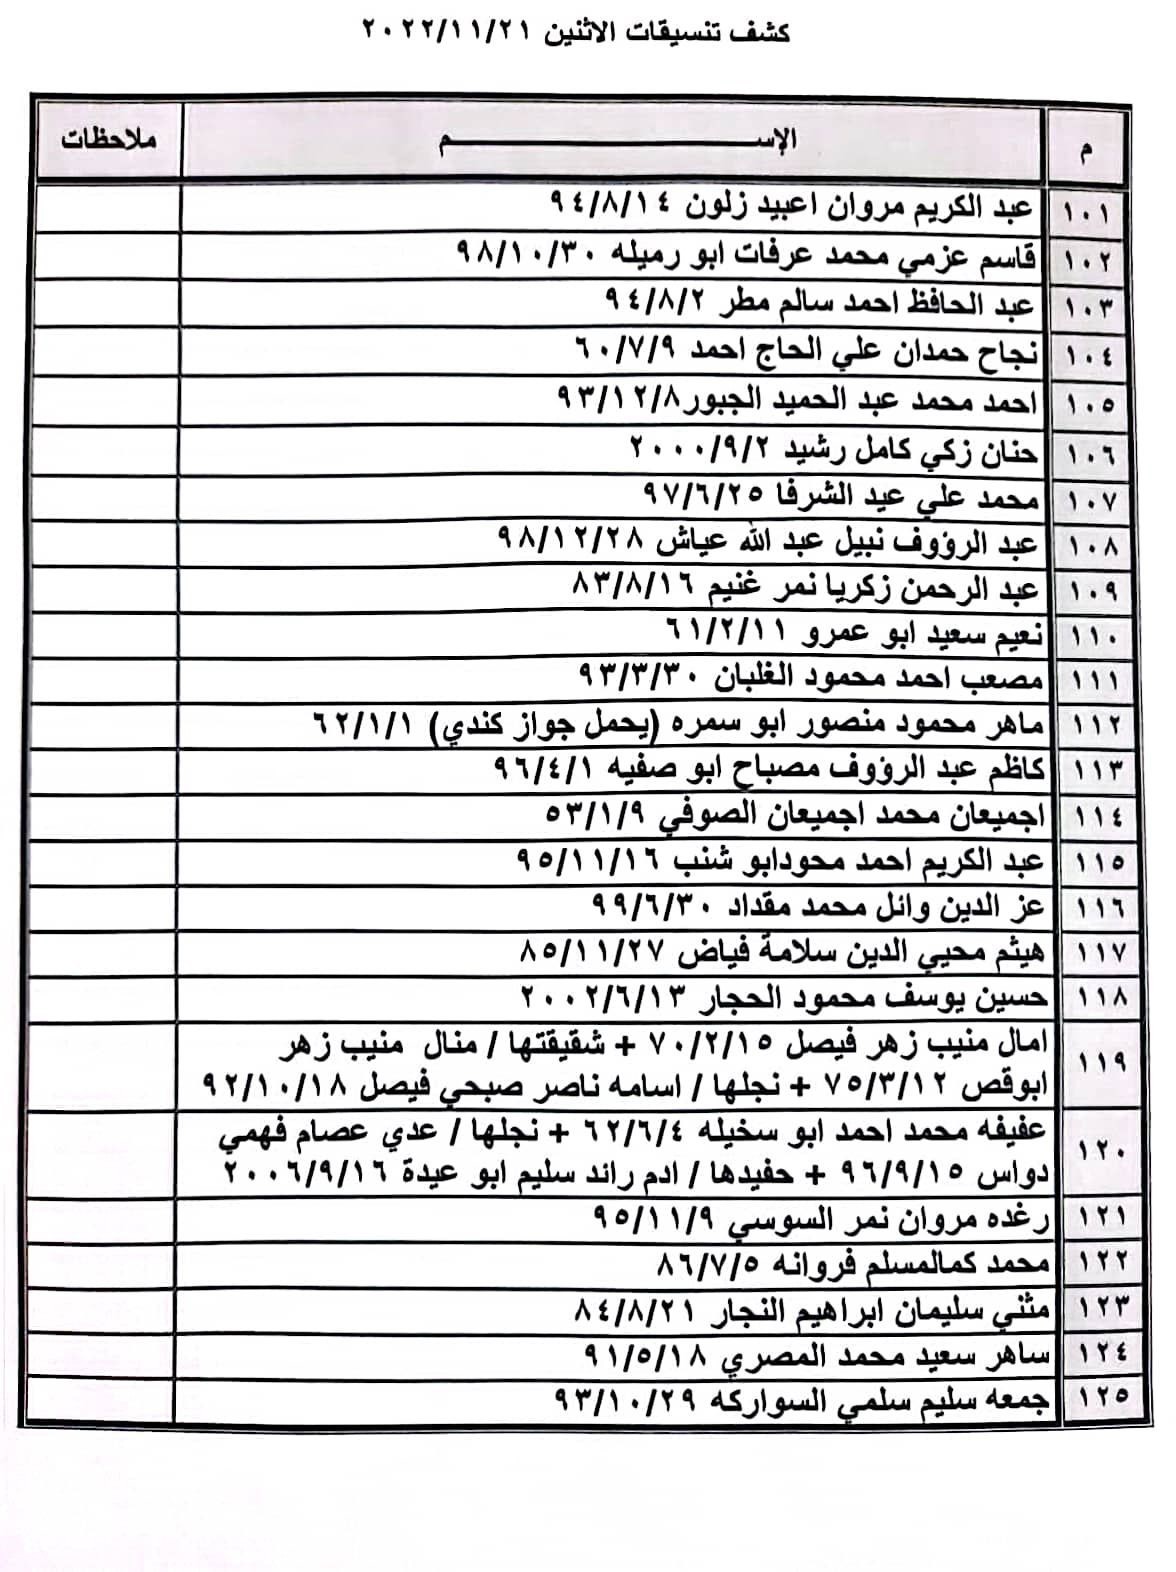 كشف تنسيقات الاثنين ٢٠٢٢/١١/٢١
م الإســـــــــــــــــــــــــــم ملاحظات
١٠١ عبد الكريم مروان اعبيد زلون ٩٤/٨/١٤
١٠٢ قاسم عزمي محمد عرفات ابو رميله ٩٨/١٠/٣٠
١٠٣ عبد الحافظ احمد سالم مطر ٩٤/٨/٢
١٠٤ نجاح حمدان علي الحاج احمد ٦٠/٧/٩
١٠٥ احمد محمد عبد الحميد الجبور٩٣/١٢/٨
١٠٦ حنان زكي كامل رشيد ٢٠٠٠/٩/٢
١٠٧ محمد علي عيد الشرفا ٩٧/٦/٢٥
١٠٨ عبد الرؤوف نبيل عبد الله عياش ٩٨/١٢/٢٨
١٠٩ عبد الرحمن زكريا نمر غنيم ٨٣/٨/١٦
١١٠ نعيم سعيد ابو عمرو ٦١/٢/١١
١١١ مصعب احمد محمود الغلبان ٩٣/٣/٣٠
١١٢ ماهر محمود منصور ابو سمره (يحمل جواز كندي) ٦٢/١/١
١١٣ كاظم عبد الرؤوف مصباح ابو صفيه ٩٦/٤/١
١١٤ اجميعان محمد اجميعان الصوفي ٥٣/١/٩
١١٥ عبد الكريم احمد محودابو شنب ٩٥/١١/١٦
١١٦ عز الدين وائل محمد مقداد ٩٩/٦/٣٠
١١٧ هيثم محيي الدين سلامة فياض ٨٥/١١/٢٧
١١٨ حسين يوسف محمود الحجار ٢٠٠٢/٦/١٣
١١٩ امال منيب زهر فيصل ٧٠/٢/١٥ + شقيقتها / منال منيب زهر
ابوقص ٧٥/٣/١٢ + نجلها / اسامه ناصر صبحي فيصل ٩٢/١٠/١٨
١٢٠ عفيفه محمد احمد ابو سخيله ٦٢/٦/٤ + نجلها / عدي عصام فهمي
دواس ٩٦/٩/١٥ + حفيدها / ادم رائد سليم ابو عيدة ٢٠٠٦/٩/١٦
١٢١ رغده مروان نمر السوسي ٩٥/١١/٩
١٢٢ محمد كمالمسلم فروانه ٨٦/٧/٥
١٢٣ مثني سليمان ابراهيم النجار ٨٤/٨/٢١
١٢٤ ساهر سعيد محمد المصري ٩١/٥/١٨
١٢٥ جمعه سليم سلمي السواركه ٩٣/١٠/٢٩